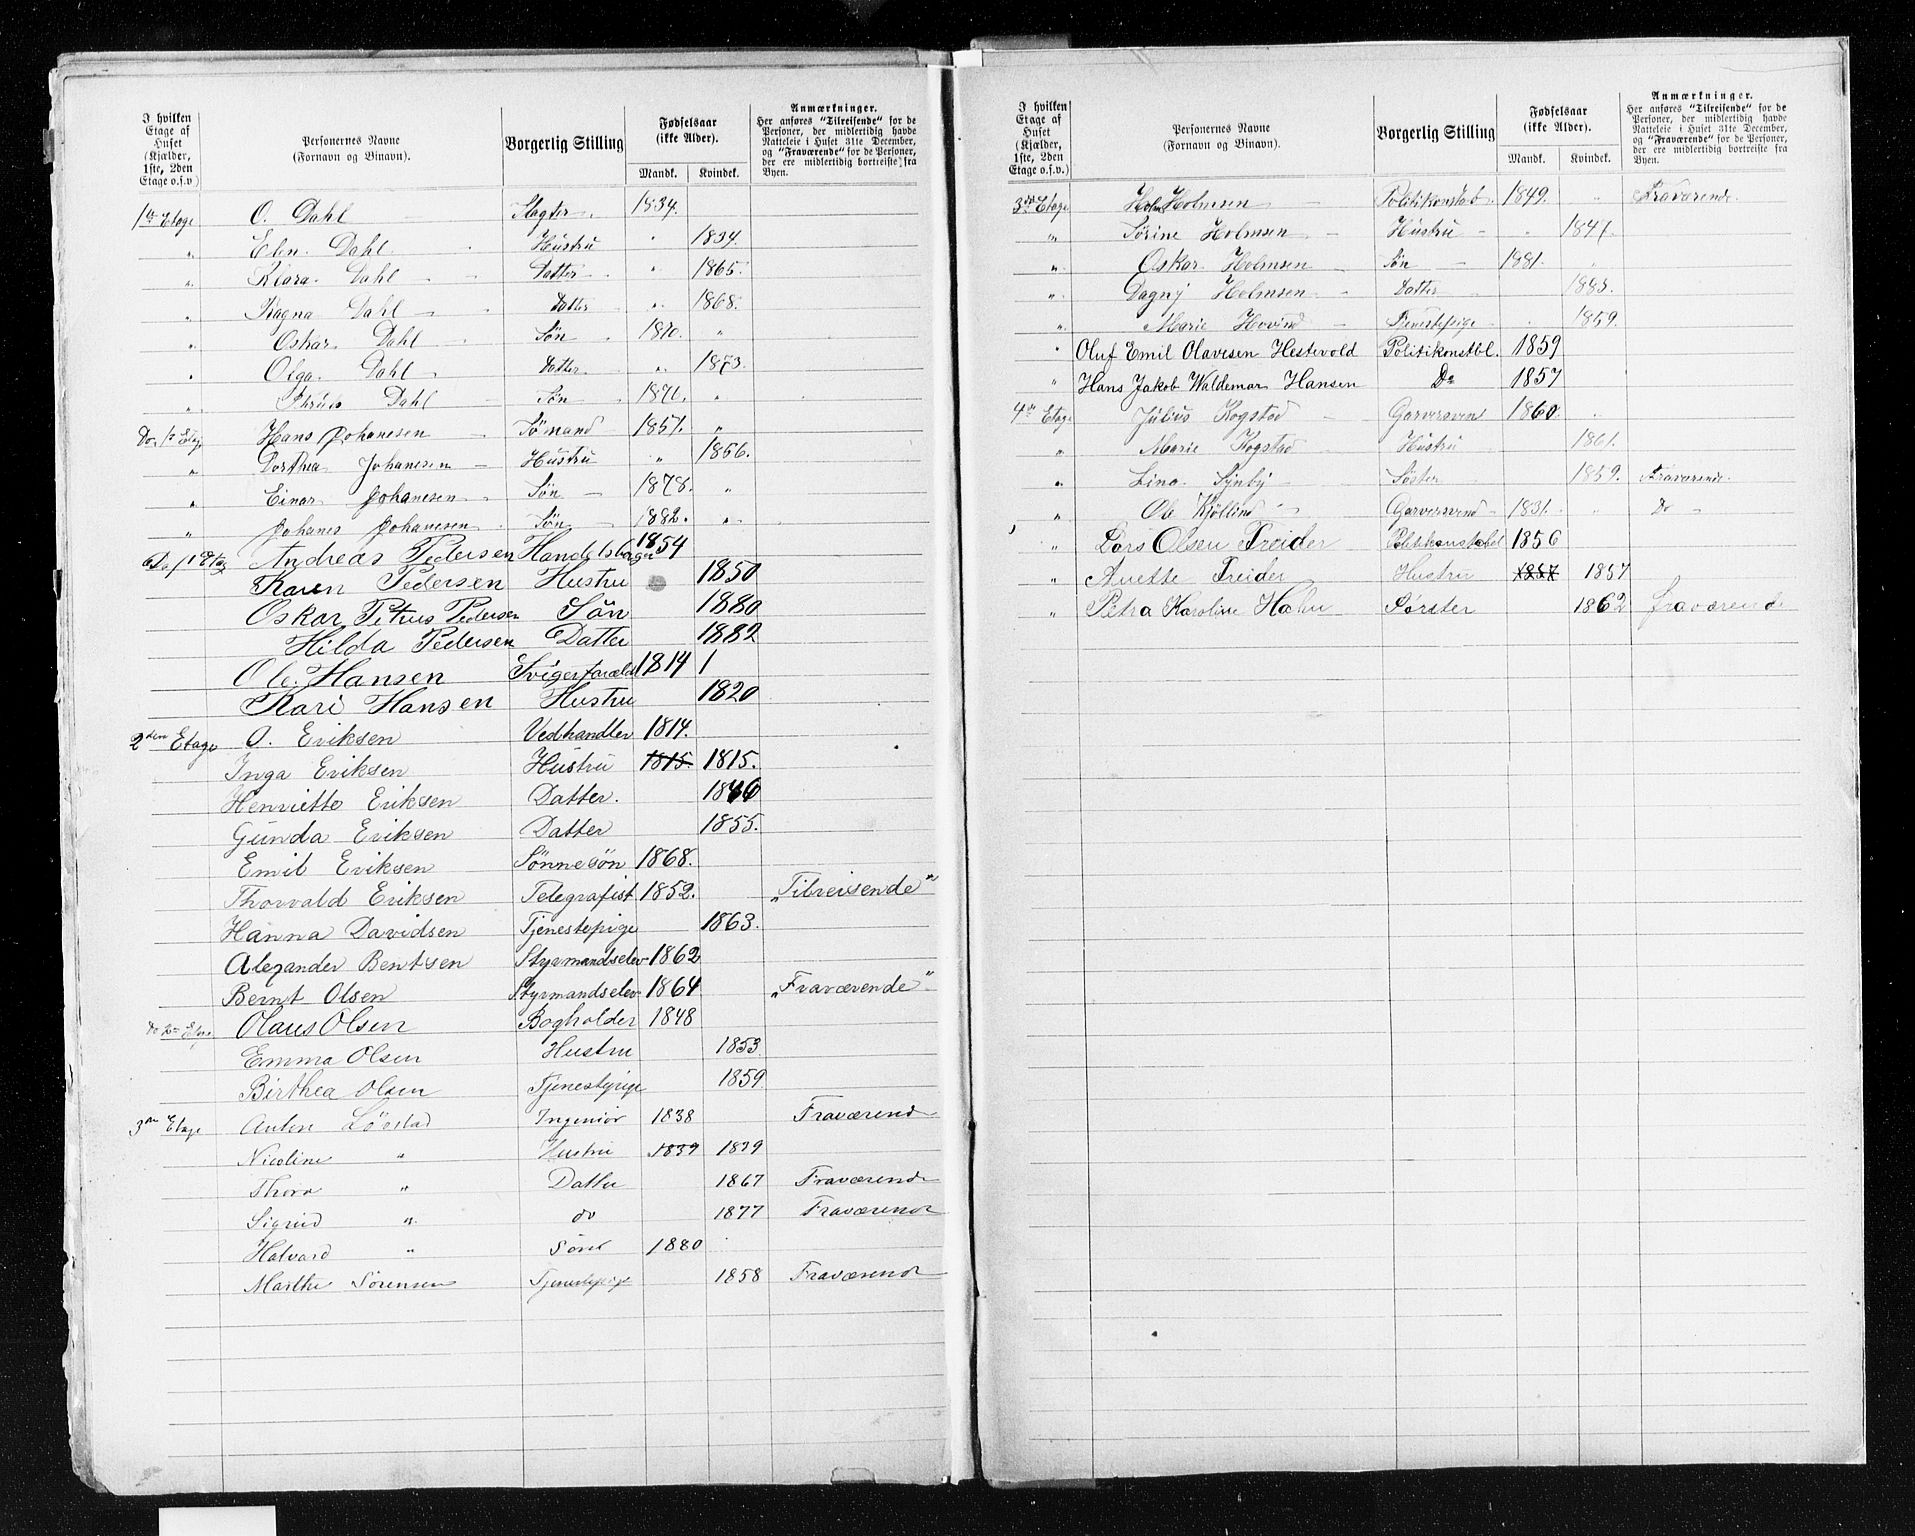 I hvilken Etage af Huset (Kjælder, 1ste, 2den Etage o.s.v.)
Personernes Navne (Fornavn og Binavn).
Borgerlig Stilling
Fødselsaar (ikke Alder).
Mandk. Kvindek.
Anmærkninger.
Her anføres "Tilreisende" for de Personer, der midlertidig havde Natteleie i Huset 31te December, og "Fraværende" for de Personer, der ere midlertidig bortreiste fra Byen.
1ste Etage O. Dahl Slagter 1834.
" Elen Dahl Hustru " 1834.
" Klara Dahl Datter " 1865.
" Ragna Dahl Datter " 1868.
" Oskar Dahl Søn 1870. "
" Olga Dahl Datter " 1873.
" Dahl Søn 1871. "
Do 1ste Etage Hans Johanesen Sömand 1857. "
" Dorthea Johanesen Hustru " 1856.
" Einar Johanesen Søn 1878. "
" Johanes Johanesen Søn 1882. "
Do 1 Etag Andreas Pedersen Handelsborger 1854
Karen Pedersen Hustru 1850
Oskar Petrus Pedersen Søn 1880
Hilda Pedersen Datter 1882
Ole Hansen Svigerforæld 1814 1
Kari Hansen Hustru 1820
2den Etage O. Eriksen Vedhandler 1814.
Inga Eriksen Hustru 1815. 1815.
Henriette Eriksen Datter. 1846
Gunda Eriksen Datter 1855.
Emil Eriksen Sønnesøn 1868.
Thorvald Eriksen Telegrafist 1852. "Tilreisende"
Hanna Davidsen Tjenestepige 1863.
Alexander Bentsen Styrmandselev 1862
Bernt Olsen Styrmandselev 1864 "Fraværende"
Do 2den Etage Olaus Olsen Bogholder 1848
Emma Olsen Hustru 1853
Birthea Olsen Tjenestepige 1859
3die Etage Anton Lövstad Ingeniør 1838 Fraværend
Nicoline " Hustru 1839 1839
Thora " Datter 1867 Fraværend
Sigrid " do 1877 Fraværend
Halvard " Sönd 1880
Marthe Sörensen Tjenestepige 1858 Fraværend
I hvilken Etage af Huset (Kjælder, 1ste, 2den Etage o.s.v.)
Personernes Navne (Fornavn og Binavn).
Borgerlig Stilling
Fødselsaar (ikke Alder).
Mandk. Kvindek.
Anmærkninger.
Her anføres "Tilreisende" for de Personer, der midlertidig havde Natteleie i Huset 31te December, og "Fraværende" for de Personer, der ere midlertidig bortreiste fra Byen.
3die Etage Holmsen Politikonstab. 1849. " Fraværende.
" Sørine Holmsen Hustru " 1847.
" Oskar Holmsen Søn 1881. "
" Dagny Holmsen Datter 1883.
" Marie Hovind Tjenestepige 1859.
" Oluf Emil Olavesen Hestevold Politikonstbl. 1859
" Hans Jakob Waldemar Hansen Do 1857
4de Etage Julius Kogstad Garversven 1860. "
" Marie Kogstad Hustru 1861.
" Lina Synbÿ Søster 1859. Fraværende.
" Ole Kjöllind Garversvend 1831. " Do
" Lars Olsen Freider Politikonstabel 1856
" Anette Freider Hustru 1857 1857
" Petra Karoline Hahn Sørster 1862 fraværende